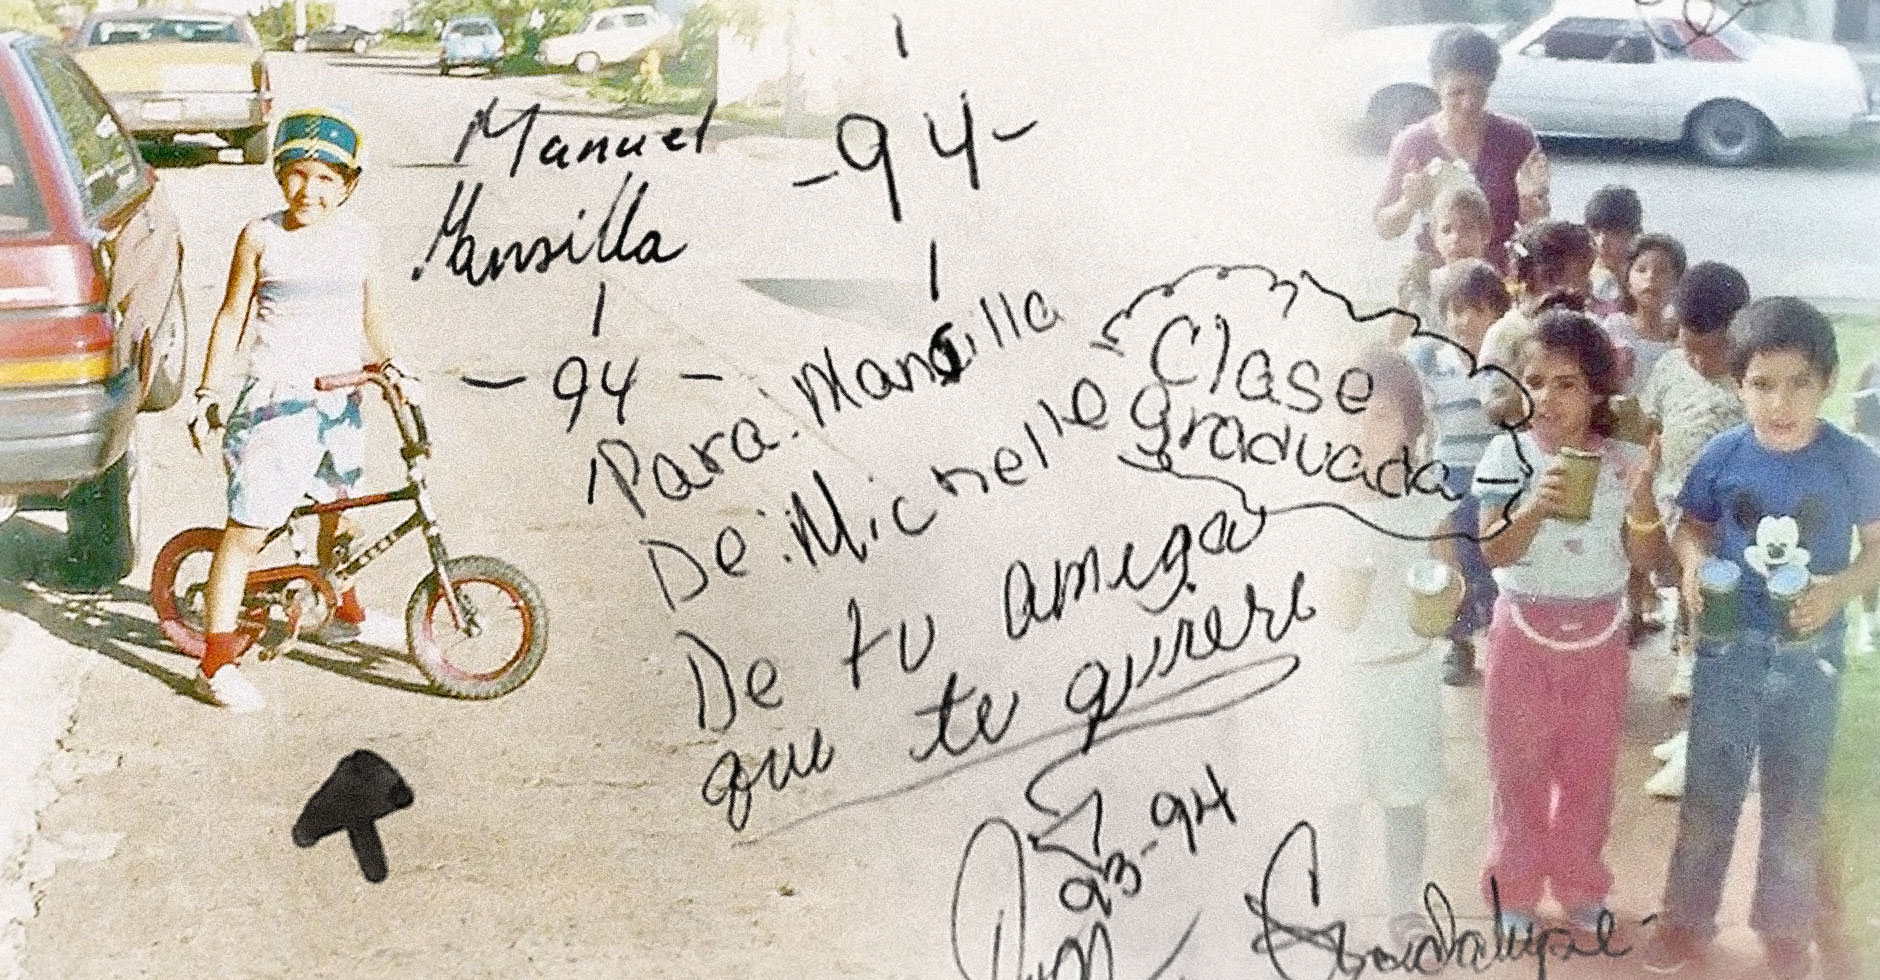 Manuel
Mansilla
- 94 -
- 94 -
Para: Mansilla
De: Michelle
De tu amiga
que te quiere
Clase
graduada
93-94
Guadalupe